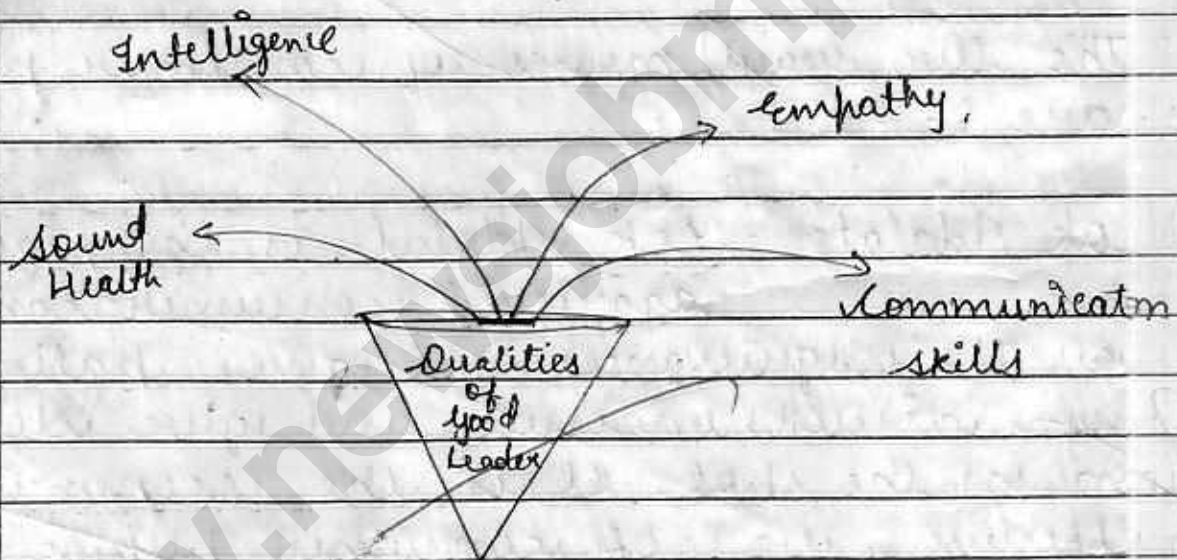 Intelligence
Empathy.
Sound
Health
Communicatn
skills
Qualities
of
Good
Leader
www.newsjobm